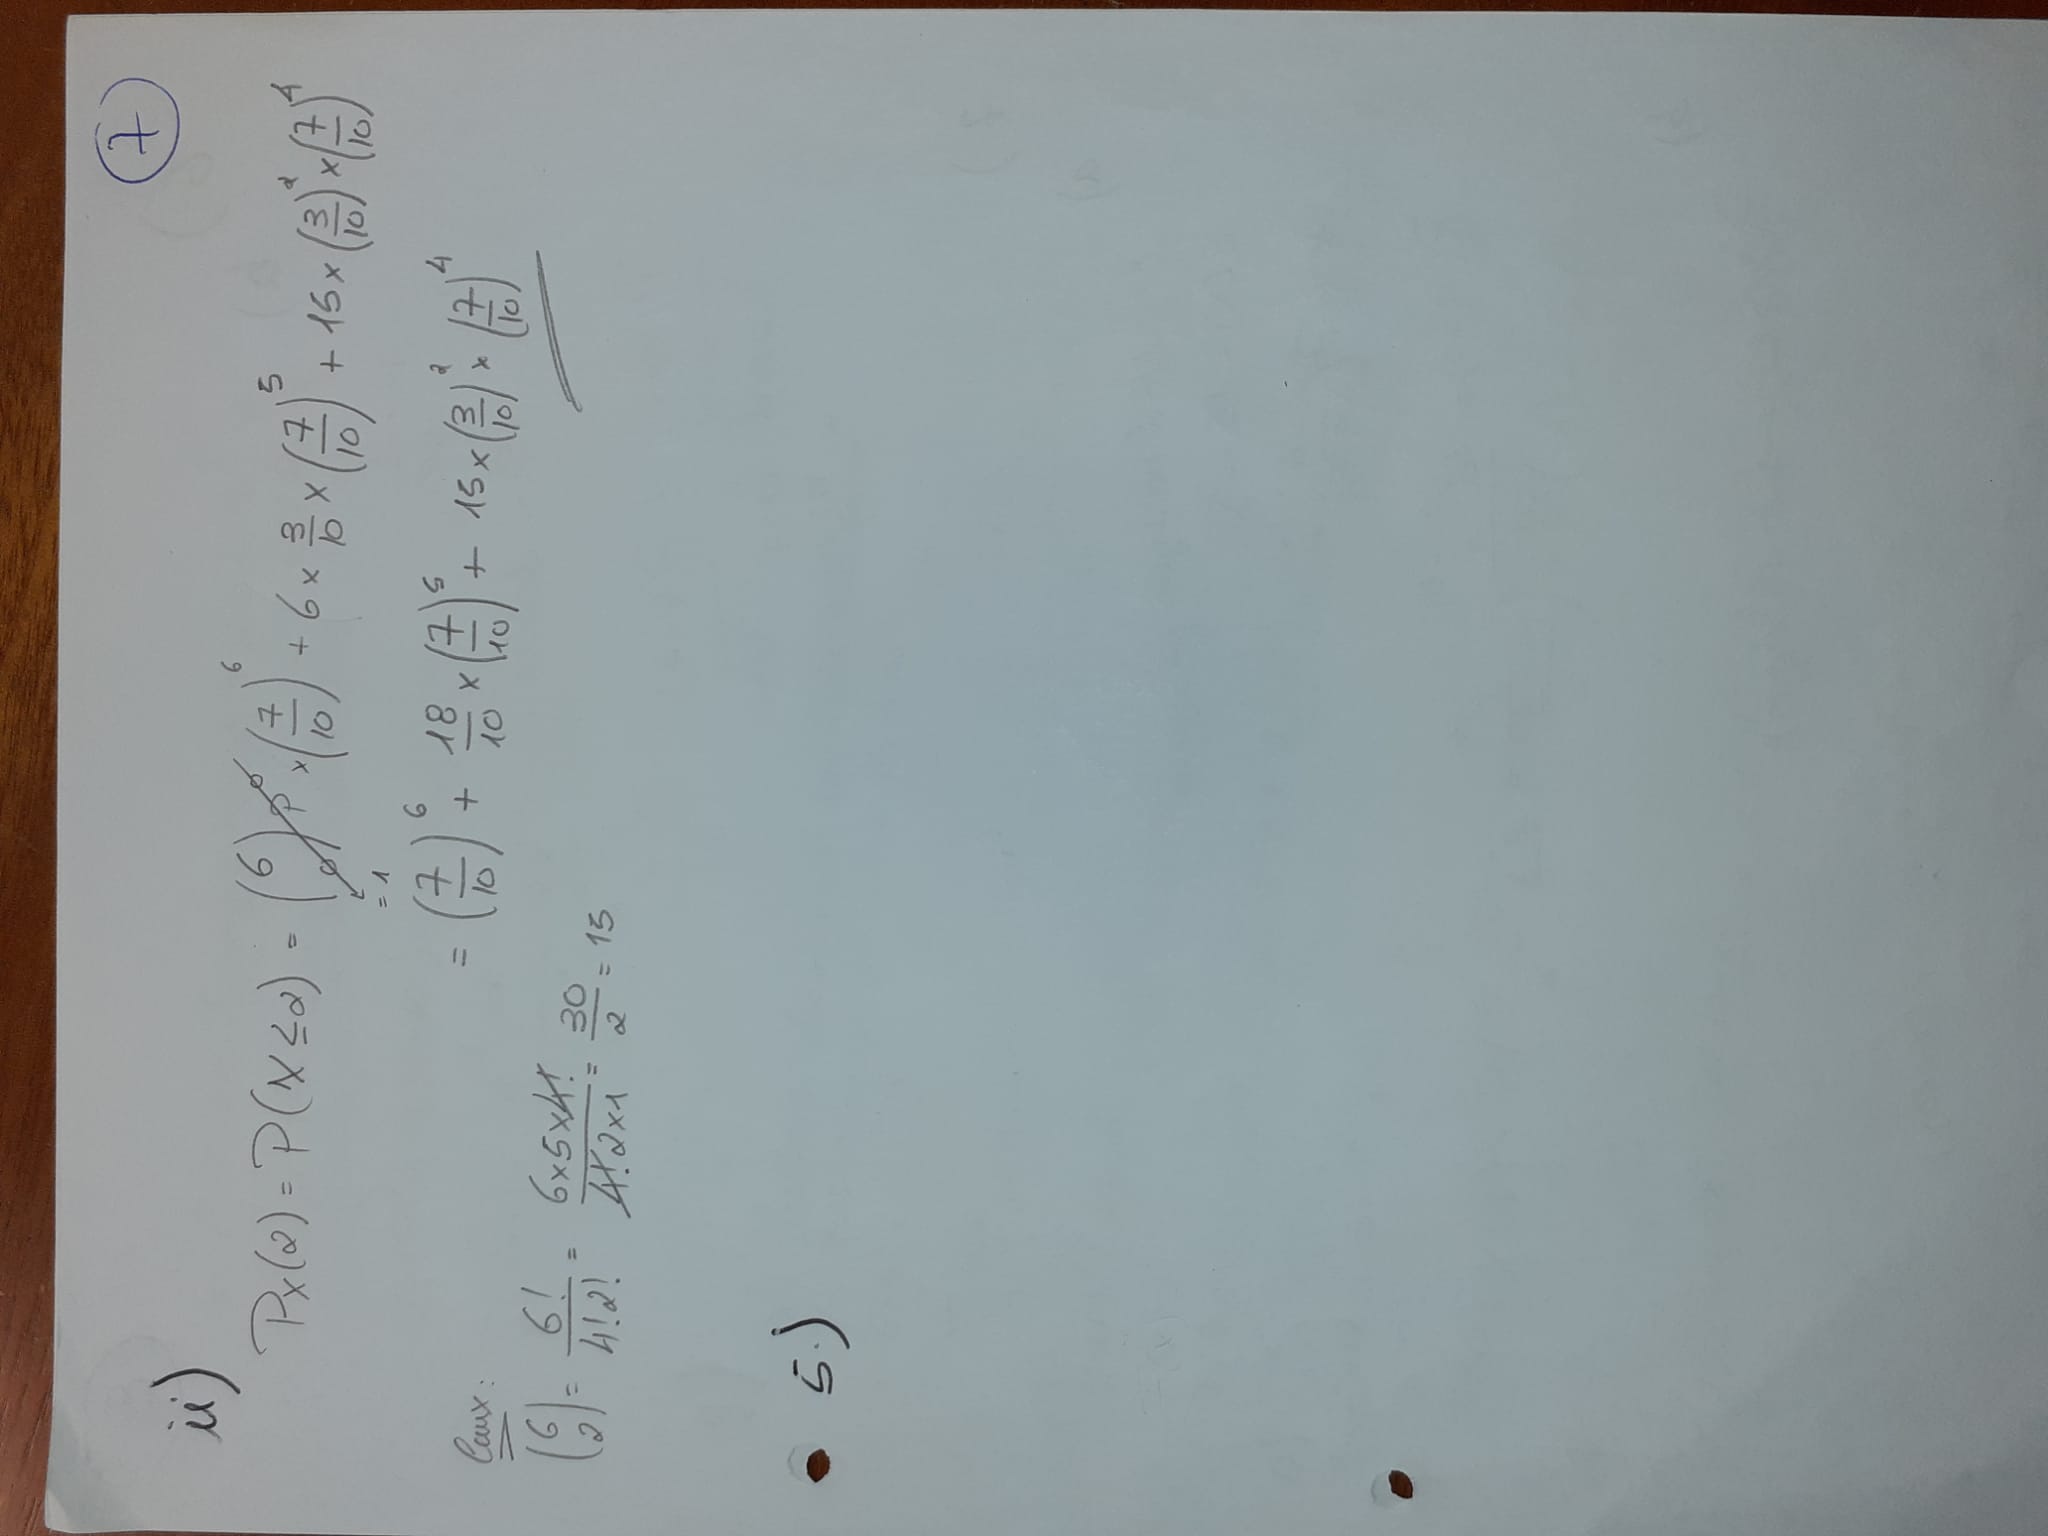 7
ii)
Px(2) = P(X ≤ 2) = (6 0) p^0 × (7/10)^6 + 6 × 3/10 × (7/10)^5 + 15 × (3/10)^2 × (7/10)^4
= 1
= (7/10)^6 + 18/10 × (7/10)^5 + 15 × (3/10)^2 × (7/10)^4
Caux:
(6 2) = 6!/4!2! = 6×5×4!/4!2×1 = 30/2 = 15
5.)